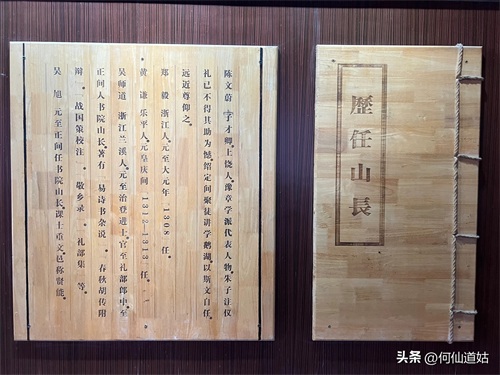 歷任山長
陈文蔚 字才卿。上饶人。豫章学派代表人物。朱子注仪
礼已不得其助为憾。绍定间聚徒讲学鹅湖。以斯文自任。
远近尊仰之。
郑 毅 浙江人。元至大元年 1308 任。
黄 谦 乐平人。元皇庆间 1312-1313 任。
吴师道 浙江兰溪人。元至治登进士。官至礼部郎中。至
正间人书院山长。著有 易诗书杂说 春秋胡传附
辩 战国策校注 敬乡录 礼部集 等。
吴 旭 元至正间任书院山长。课士重文。邑称贤能。
头条 @何仙道姑